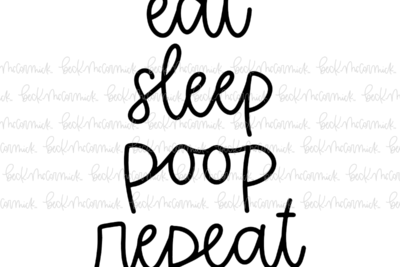 eat
sleep
poop
repeat